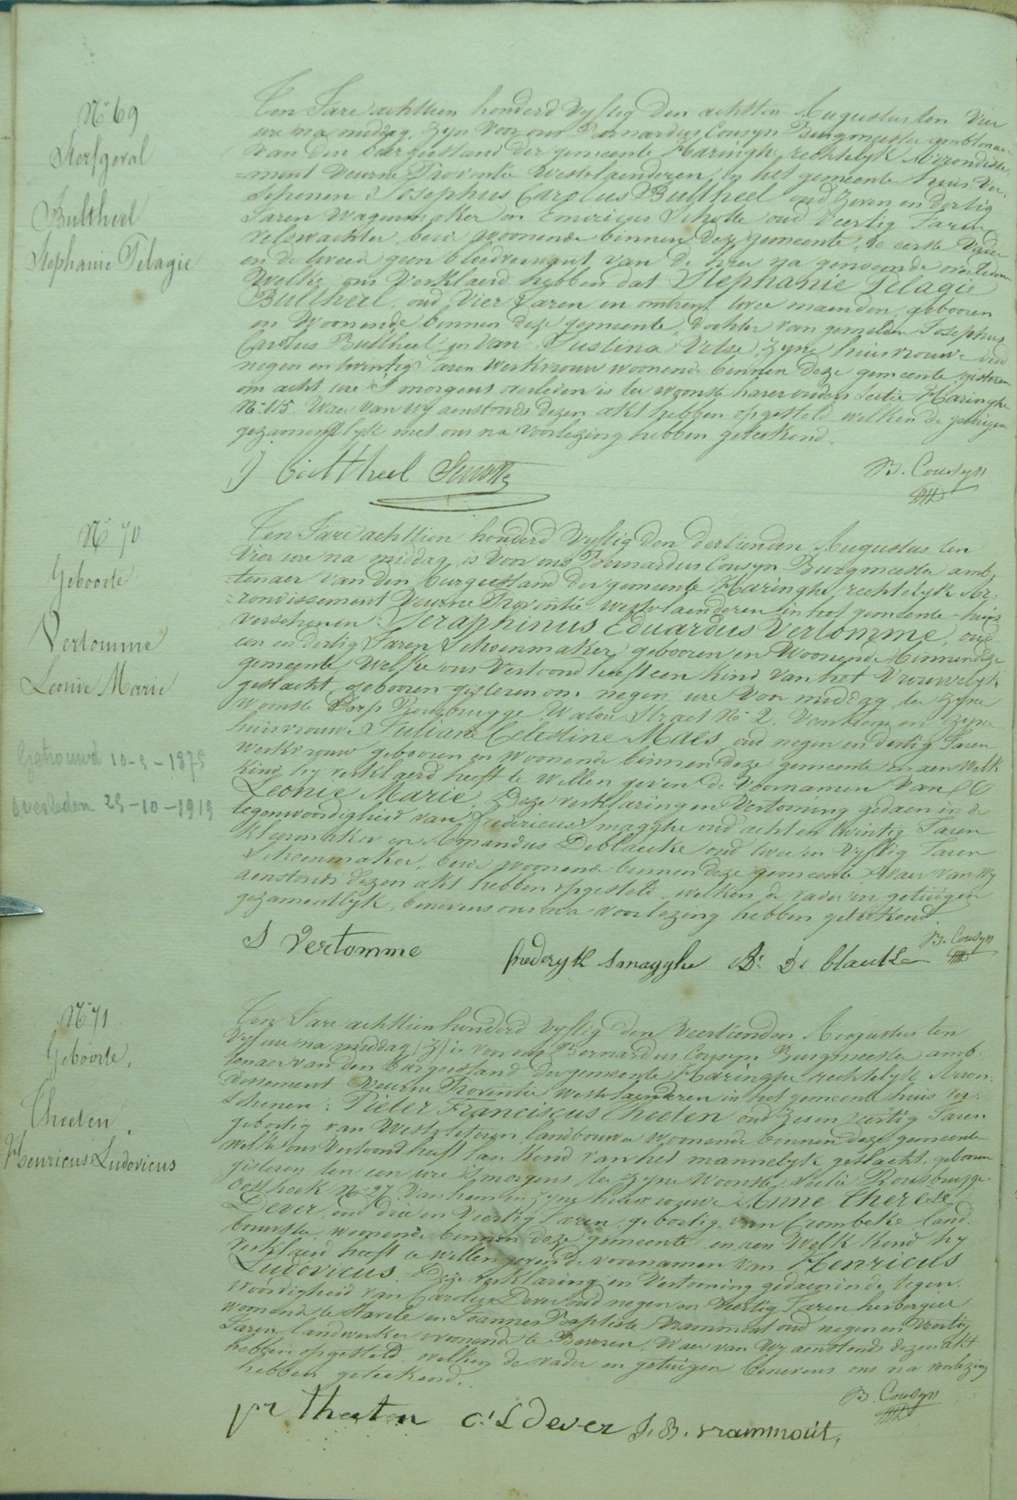 N° 69
Sterfgeval
Bultheel
Stephanie Pelagie
Ten Jare achttien honderd vyftig den achtsten Augustus ten vier
ure na middag, zyn voor ons Bernardus Cousyn Burgmeester ambtenaer
van den burgerstand der gemeente Haringhe, rechtelyk Arrondisse-
=ment Veurne Provintie Westvlaenderen, in het gemeente huis ver-
schenen: Josephus Carolus Bultheel oud zeven en dertig
Jaren wagenmaker en Emericus oud veertig Jaren
velswachter, beide woonende binnen deze gemeente, de eerste vader
en de tweede geen bloedverwant van de hier na genoemde overledene
Welke ons verklaerd hebben dat Stephanie Pelagie
Bultheel, oud vier Jaren en omtrent twee maenden, gebooren
en woonende binnen deze gemeente, dochter van gemelden Josephus
Carolus Bultheel en van Justina Velse, zyne huisvrouw, oud
negen en twintig Jaren werkvrouw woonende binnen deze gemeente, gisteren
om acht ure 's morgens overleden is ter woonste harer ouders Sectie Haringhe
N° 115. Waer van wy aenstonds dezen akt hebben opgesteld welken de getuigen
gezamentlyk met ons na voorlezing hebben geteekend.
Bultheel
B. Cousyn
N° 70
Geboorte
Vertomme
Leonie Marie
Getrouwd 10-8-1875
Overleden 25-10-1919
Ten Jare achttien honderd vyftig den dertienden Augustus ten
vier ure na middag, is voor ons Bernardus Cousyn Burgmeester amb-
=tenaer van den burgerstand der gemeente Haringhe, rechtelyk Ar-
=rondissement Veurne Provintie Westvlaenderen in het gemeente huis
verschenen: Seraphinus Eduardus Vertomme, oud
een en dertig Jaren schoenmaker, gebooren en woonende binnen deze
gemeente Welke ons vertoond heeft een kind van het vrouwelyk
geslacht, gebooren gisteren om negen ure voor middag, ter zyne
woonste Dorp Rousbrugge Watou Straet N° 2, van hem en zyne
huisvrouwe Juliana Celestine Maes oud negen en dertig Jaren
werkvrouw gebooren en woonende binnen deze gemeente en aen welk
kind hy verklaerd heeft te willen geven de voornamen van
Leonie Marie. Deze verklaring en vertooning gedaen in de
tegenwoordigheid van Fredericus Smagghe oud acht en twintig Jaren
en Amandus Deblaucke oud twee en vyftig Jaren
schoenmaker, beide woonende binnen deze gemeente. Waer van wy
aenstonds dezen akt hebben opgesteld, welken de vader en getuigen
gezamentlyk, benevens ons na voorlezing hebben geteekend
S Vertomme
frederyk Smagghe
De blaucke
B. Cousyn
N° 71
Geboorte.
Theeten.
Henricus Ludovicus
Ten Jare achttien honderd vyftig den veertienden Augustus ten
vyf ure na middag, is voor ons Bernardus Cousyn Burgmeester amb-
tenaer van den burgerstand der gemeente Haringhe rechtelyk Arron-
dissement Veurne Provintie Westvlaenderen in het gemeente huis ver-
schenen: Pieter Franciscus Theeten oud zeven veertig Jaren
geboortig van Westvleteren landbouwer woonende binnen deze gemeente
Welke ons vertoond heeft een kind van het mannelyk geslacht, gebooren
gisteren ten een ure 's morgens ter zyne woonste, Sectie Rousbrugge
Oosthoek N° 27, van hem en zyne huisvrouwe Anne Therese
Dever, oud drie en veertig Jaren, geboortig van Crombeke land-
bouwster woonende binnen deze gemeente en aen welk kind hy
verklaerd heeft te willen geven de voornamen van Henricus
Ludovicus. Deze verklaring en vertooning gedaen in de tegen-
woordigheid van Carolus Dever oud negen en veertig Jaren herbergier
woonende te Stavele en Joannes Baptiste Vrammout oud negen en veertig
Jaren landwerker woonende te Beveren. Waer van wy aenstonds dezen akt
hebben opgesteld welken de vader en getuigen benevens ons na voorlezing
hebben geteekend.
B. Cousyn
pr Theeten
C. L Dever
J. B. vrammout,